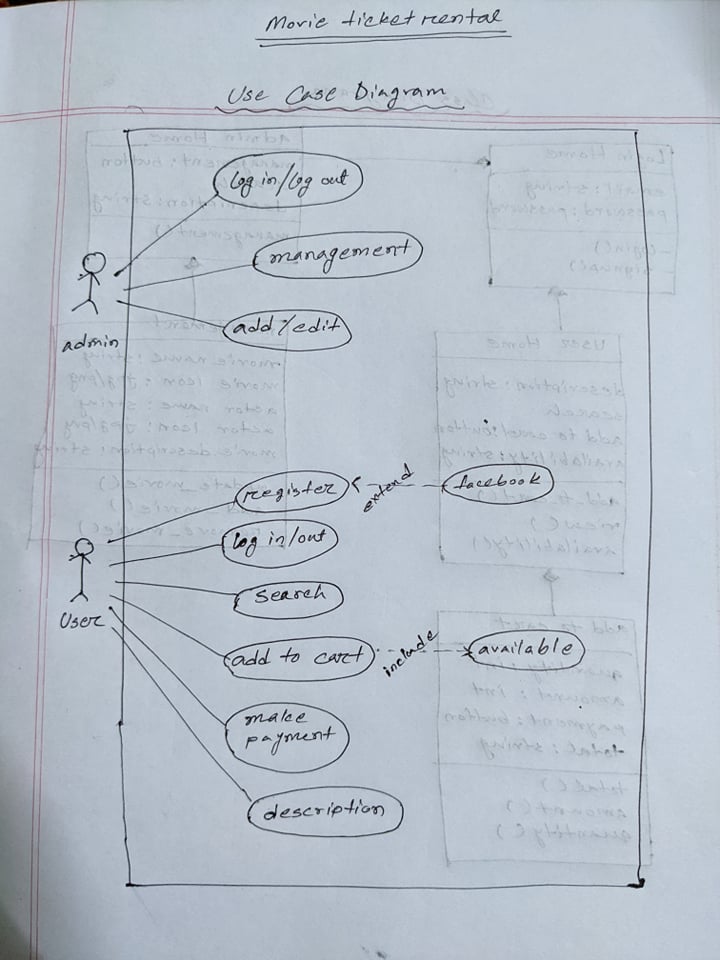 Movie ticket rental
Use Case Diagram
log in/log out
management
add/edit
admin
register
extend
facebook
log in/out
search
User
add to cart
include
available
make
payment
description